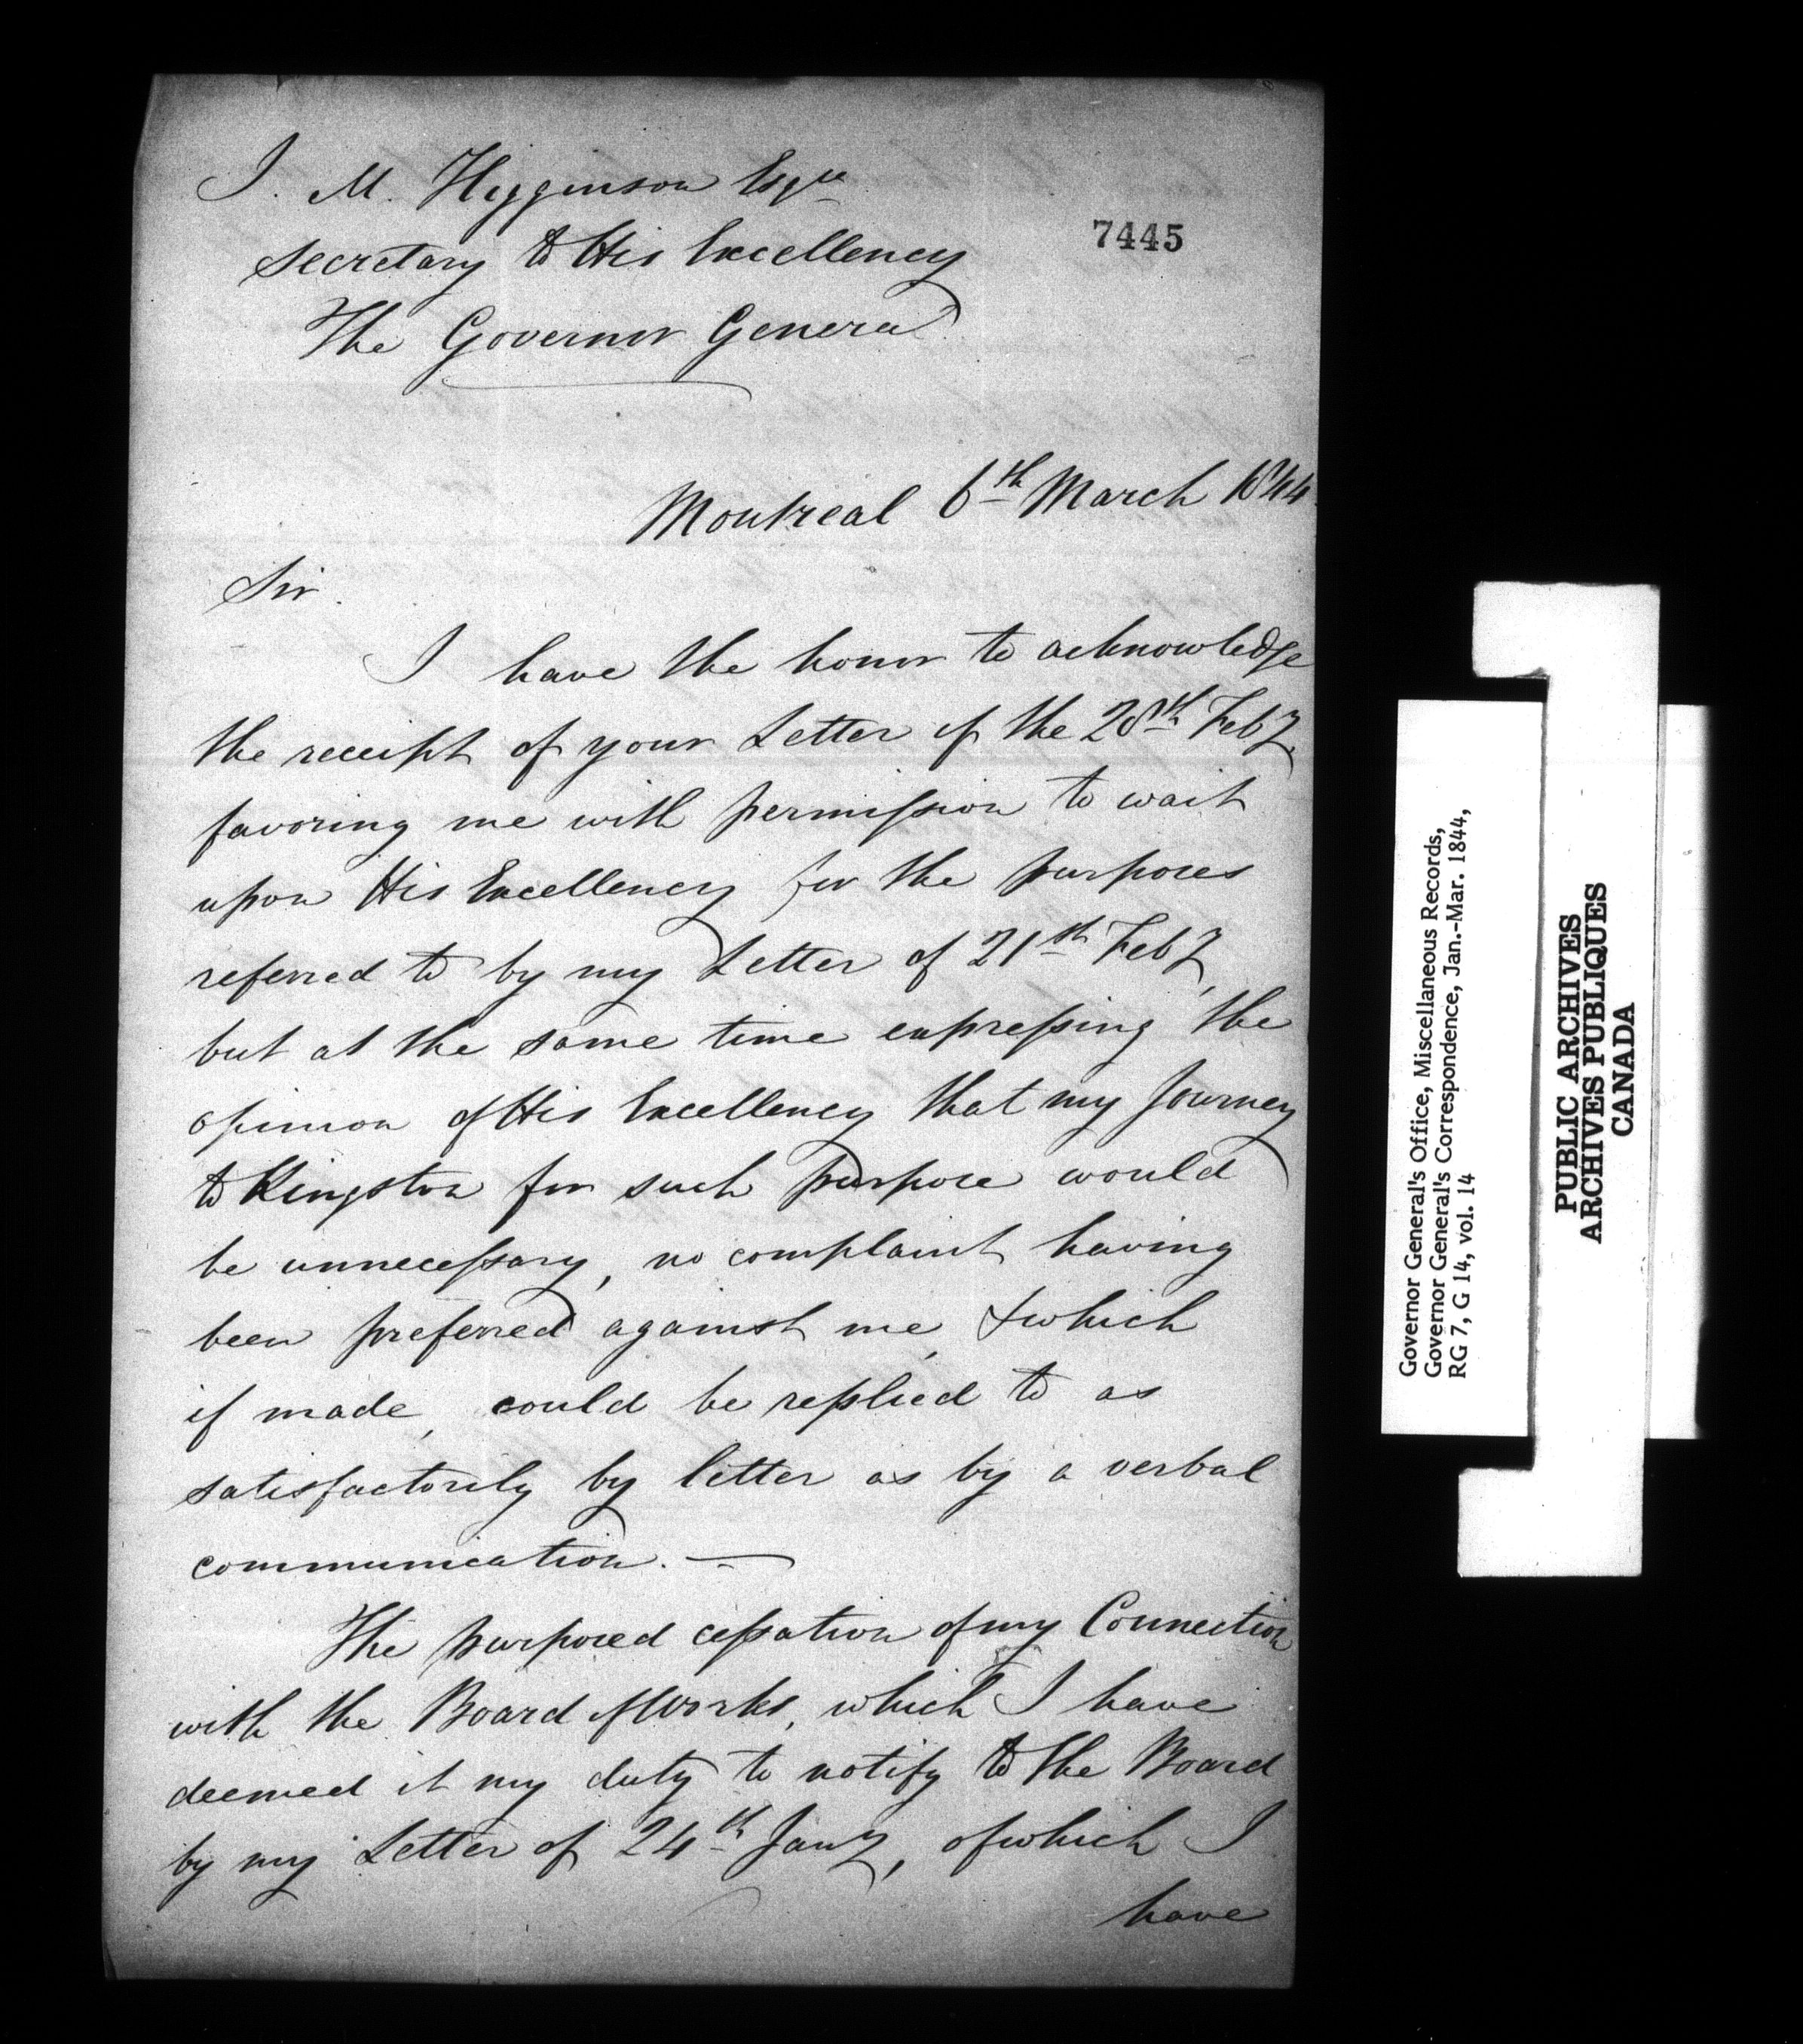 J. M. Higginson Esqre
Secretary to His Excellency
The Governor General
7445
Montreal 6th March 1844.
Sir.
I have the honor to acknowledge
the receipt of your Letter of the 28th Feby.
favoring me with permission to wait
upon His Excellency for the purposes
referred to by my Letter of 21st Feby,
but at the same time expressing the
opinion of His Excellency that my Journey
to Kingston for such purpose would
be unnecessary, no complaint having
been preferred against me, & which
if made, could be replied to as
satisfactorily by letter as by a verbal
communication. —
The purposed cessation of my Connection
with the Board of Works, which I have
deemed it my duty to notify to the Board
by my Letter of 24th Jany, of which I
have
Governor General's Office, Miscellaneous Records,
Governor General's Correspondence, Jan.-Mar. 1844,
RG 7, G 14, vol. 14
PUBLIC ARCHIVES
ARCHIVES PUBLIQUES
CANADA